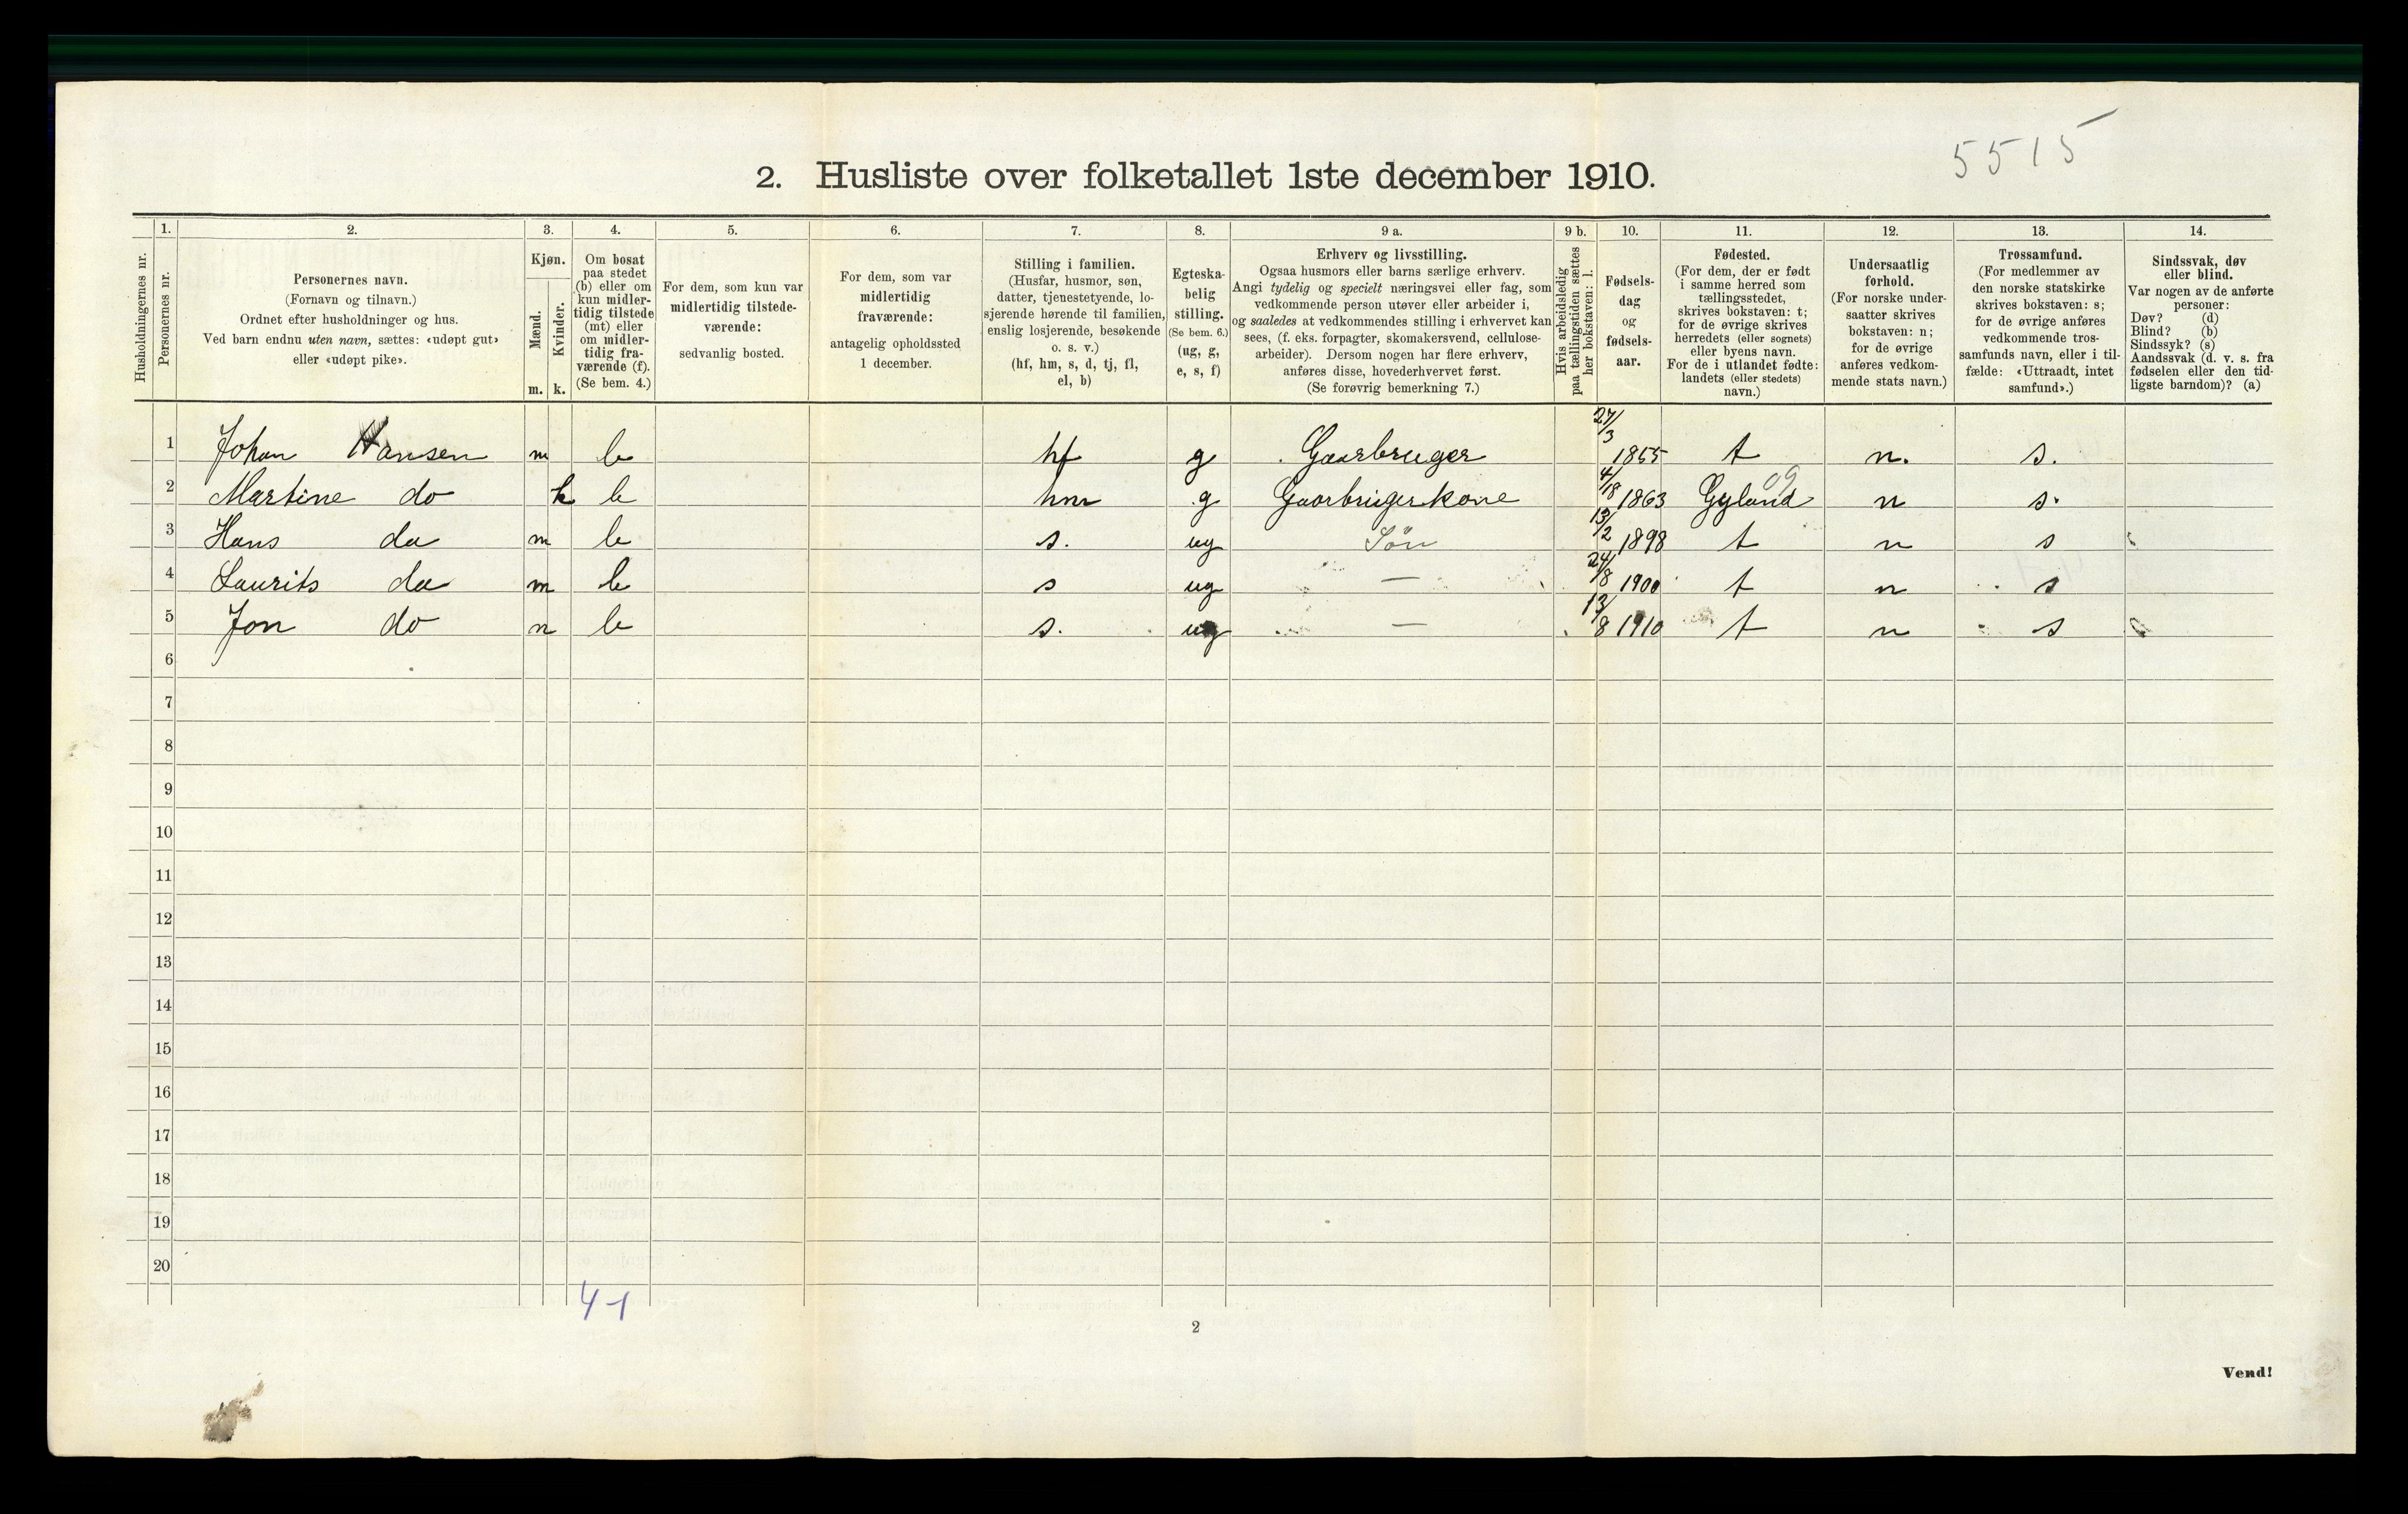 5515
2. Husliste over folketallet 1ste december 1910.
Husholdningernes nr.
1.
Personernes nr.
2.
Personernes navn.
(Fornavn og tilnavn.)
Ordnet efter husholdninger og hus.
Ved barn endnu uten navn, sættes: «udøpt gut»
eller «udøpt pike».
3.
Kjøn.
Mænd.
m.
Kvinder.
k.
4.
Om bosat
paa stedet
(b) eller om
kun midler-
tidig tilstede
(mt) eller
om midler-
tidig fra-
værende (f).
(Se bem. 4.)
5.
For dem, som kun var
midlertidig tilstede-
værende:
sedvanlig bosted.
6.
For dem, som var
midlertidig
fraværende:
antagelig opholdssted
1 december.
7.
Stilling i familien.
(Husfar, husmor, søn,
datter, tjenestetyende, lo-
sjerende hørende til familien,
enslig losjerende, besøkende
o. s. v.)
(hf, hm, s, d, tj, fl,
el, b)
8.
Egteska-
belig
stilling.
(Se bem. 6.)
(ug, g,
e, s, f)
9 a.
Erhverv og livsstilling.
Ogsaa husmors eller barns særlige erhverv.
Angi tydelig og specielt næringsvei eller fag, som
vedkommende person utøver eller arbeider i,
og saaledes at vedkommendes stilling i erhvervet kan
sees, (f. eks. forpagter, skomakersvend, cellulose-
arbeider). Dersom nogen har flere erhverv,
anføres disse, hovederhvervet først.
(Se forøvrig bemerkning 7.)
9 b.
Hvis arbeidsledig
paa tællingstiden sættes
her bokstaven: l.
10.
Fødsels-
dag
og
fødsels-
aar.
11.
Fødested.
(For dem, der er født
i samme herred som
tællingsstedet,
skrives bokstaven: t;
for de øvrige skrives
herredets (eller sognets)
eller byens navn.
For de i utlandet fødte:
landets (eller stedets)
navn.)
12.
Undersaatlig
forhold.
(For norske under-
saatter skrives
bokstaven: n;
for de øvrige
anføres vedkom-
mende stats navn.)
13.
Trossamfund.
(For medlemmer av
den norske statskirke
skrives bokstaven: s;
for de øvrige anføres
vedkommende tros-
samfunds navn, eller i til-
fælde: «Uttraadt, intet
samfund».)
14.
Sindssvak, døv
eller blind.
Var nogen av de anførte
personer:
Døv? (d)
Blind? (b)
Sindssyk? (s)
Aandssvak (d. v. s. fra
fødselen eller den tid-
ligste barndom)? (a)
1 Johan Hansen m b hf g Gaarbruger 27/3 1855 t n. s.
2 Martine do k b hm g Gaarbrugerkone 4/18 1863 Gyland 09 n s.
3 Hans do m b s. ug Søn 13/2 1898 t n s
4 Laurits do m b s ug — 24/8 1900 t n s
5 Jon do m b s. ug — 13/8 1910 t n s
6
7
8
9
10
11
12
13
14
15
16
17
18
19
20
4-1
2
Vend!